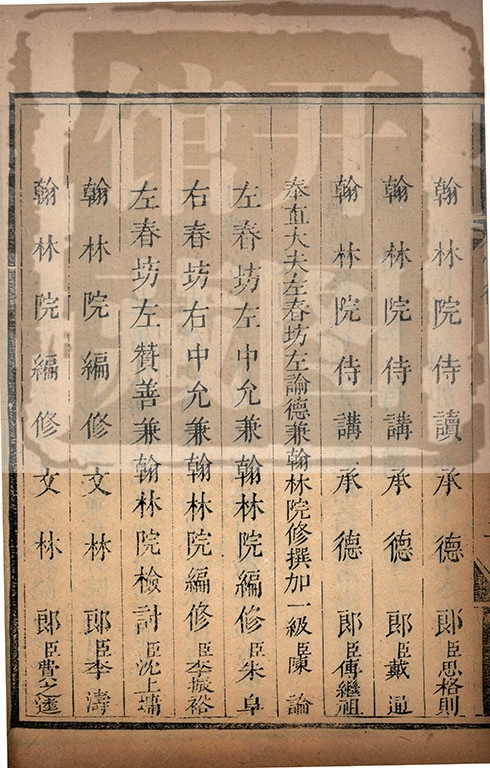 翰林院侍讀承德郎臣思格則
翰林院侍講承德郎臣戴通
翰林院侍講承德郎臣傅繼祖
奉直大夫左春坊左諭德兼翰林院修撰加一級臣陳論
左春坊左中允兼翰林院編修臣朱阜
右春坊右中允兼翰林院編修臣李振裕
左春坊左贊善兼翰林院檢討臣沈上墉
翰林院編修文林郎臣李濤
翰林院編修文林郎臣費之逵